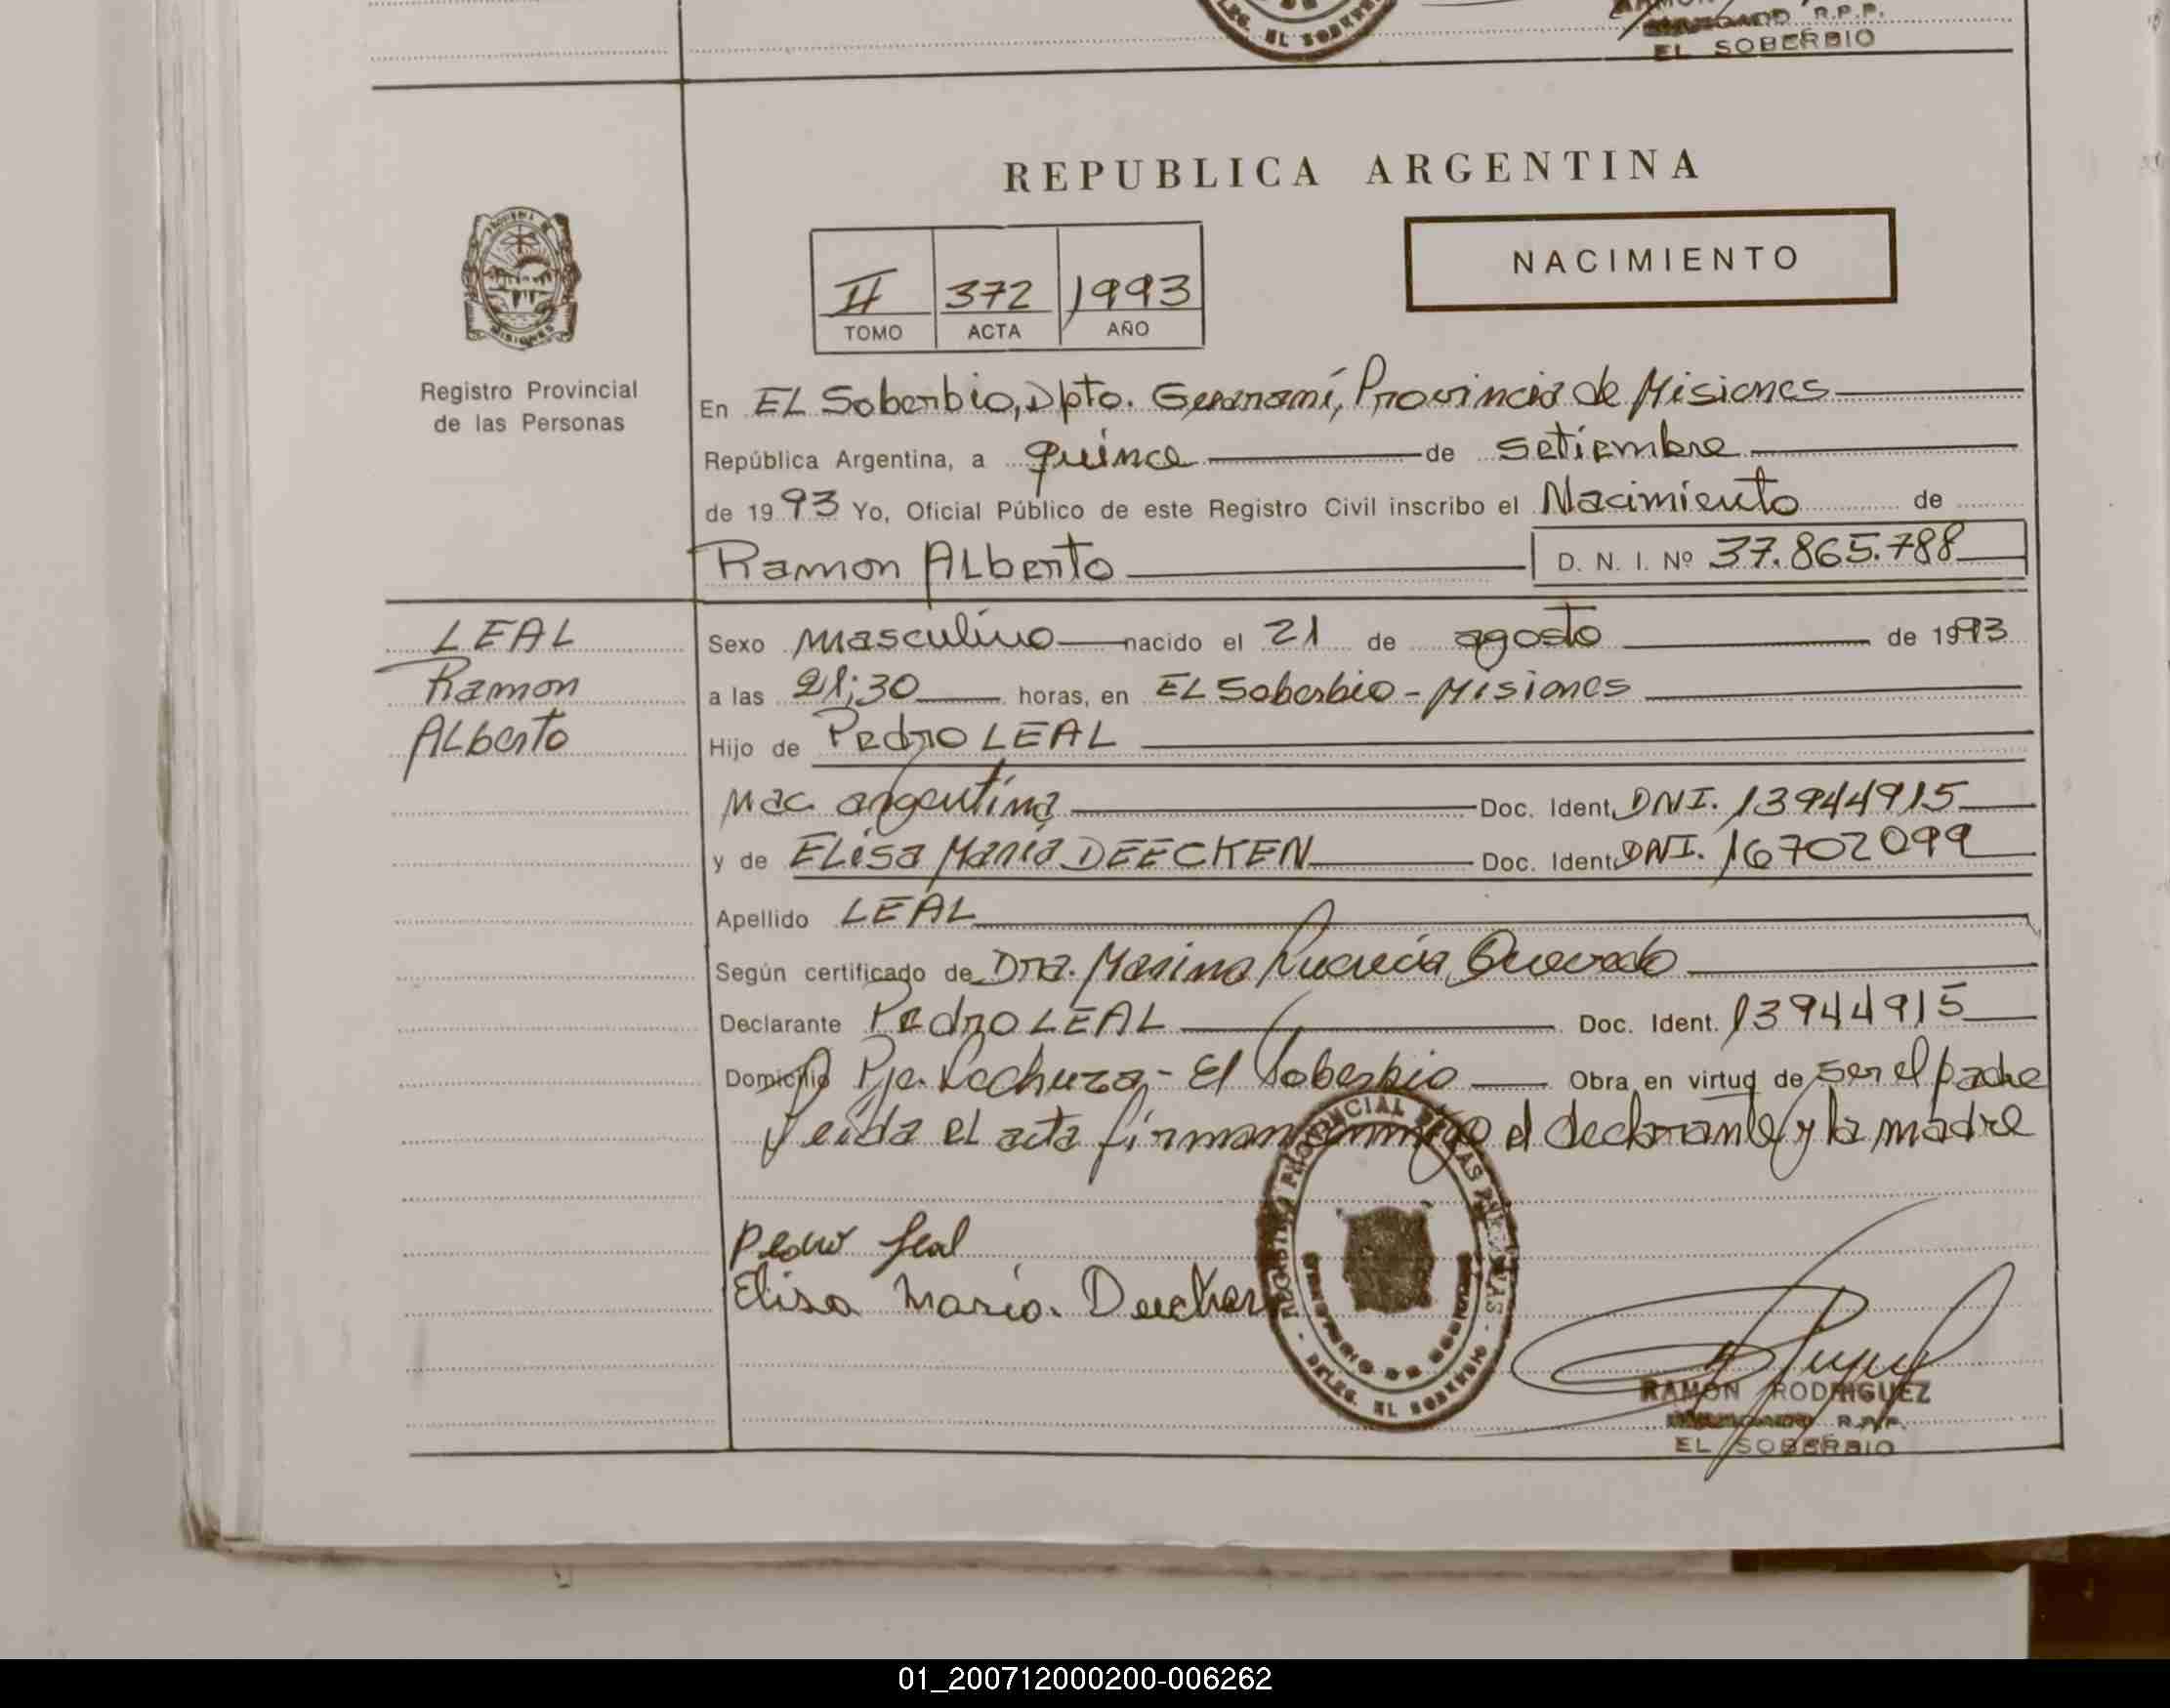 R.P.P.
EL SOBERBIO
REPUBLICA ARGENTINA
NACIMIENTO
II 372 1993
TOMO ACTA AÑO
Registro Provincial
de las Personas
En EL Soberbio, Dpto. Guaraní, Provincia de Misiones
República Argentina, a quince de setiembre
de 1993 Yo, Oficial Público de este Registro Civil inscribo el Nacimiento de
Ramon ALberto D. N. I. Nº 37.865.788
LEAL
Ramon
ALberto
Sexo masculino nacido el 21 de agosto de 1993
a las 21;30 horas, en EL Soberbio - Misiones
Hijo de Pedro LEAL
Nac. argentina Doc. Ident. DNI. 13944915
y de ELisa María DEECKEN Doc. Ident. DNI. 16702099
Apellido LEAL
Según certificado de Dra. Marina Lucrecia Quevedo
Declarante Pedro LEAL Doc. Ident. 13944915
Domicilio Pje. Lechuza - El Soberbio Obra en virtud de ser el padre
Leída el acta firman conmigo el declarante y la madre
Pedro Leal
Elisa María Deecken
REGISTRO PROVINCIAL DE LAS PERSONAS
DELEG. EL SOBERBIO
RAMON RODRIGUEZ
R.P.P.
EL SOBERBIO
01_200712000200-006262